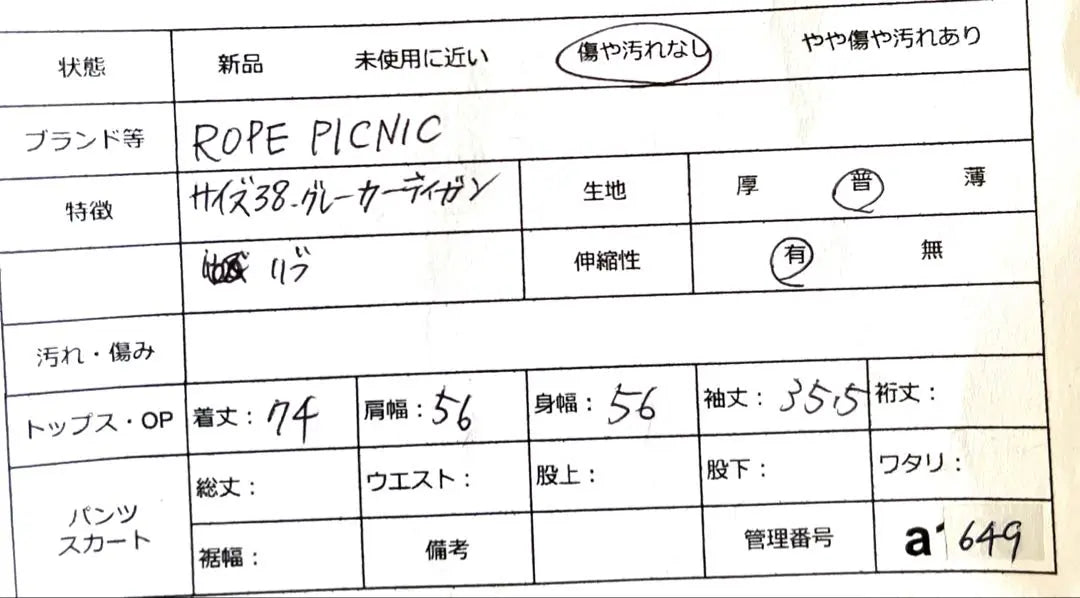 状態 新品 未使用に近い 傷や汚れなし やや傷や汚れあり
ブランド等 ROPE PICNIC
特徴 サイズ38.グレーカーディガン 生地 厚 普 薄
リブ 伸縮性 有 無
汚れ・傷み
トップス・OP 着丈：74 肩幅：56 身幅：56 袖丈：35.5 裄丈：
パンツ
スカート
総丈： ウエスト： 股上： 股下： ワタリ：
裾幅： 備考 管理番号 a1649